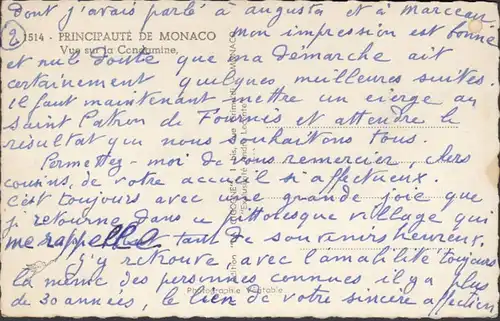 dont j'avais parlé à augusta et à Marceau
2
1514 - PRINCIPAUTÉ DE MONACO
Vue sur la Condamine,
mon impression est bonne
et nul doute que ma démarche ait
certainement quelques meilleures suites.
il faut maintenant mettre un cierge au
saint Patron de Fournès et attendre le
résultat que nous souhaitons tous.
Permettez-moi de vous remercier, chers
cousins, de votre accueil si affectueux.
c'est toujours avec une grande joie que
je retourne dans ce pittoresque village qui
me rappelle tant de souvenirs heureux.
J'y retrouve avec l'amabilité toujours
la même des personnes connues il y a plus
de 30 années, le lien de votre sincère affection
Photographie Véritable